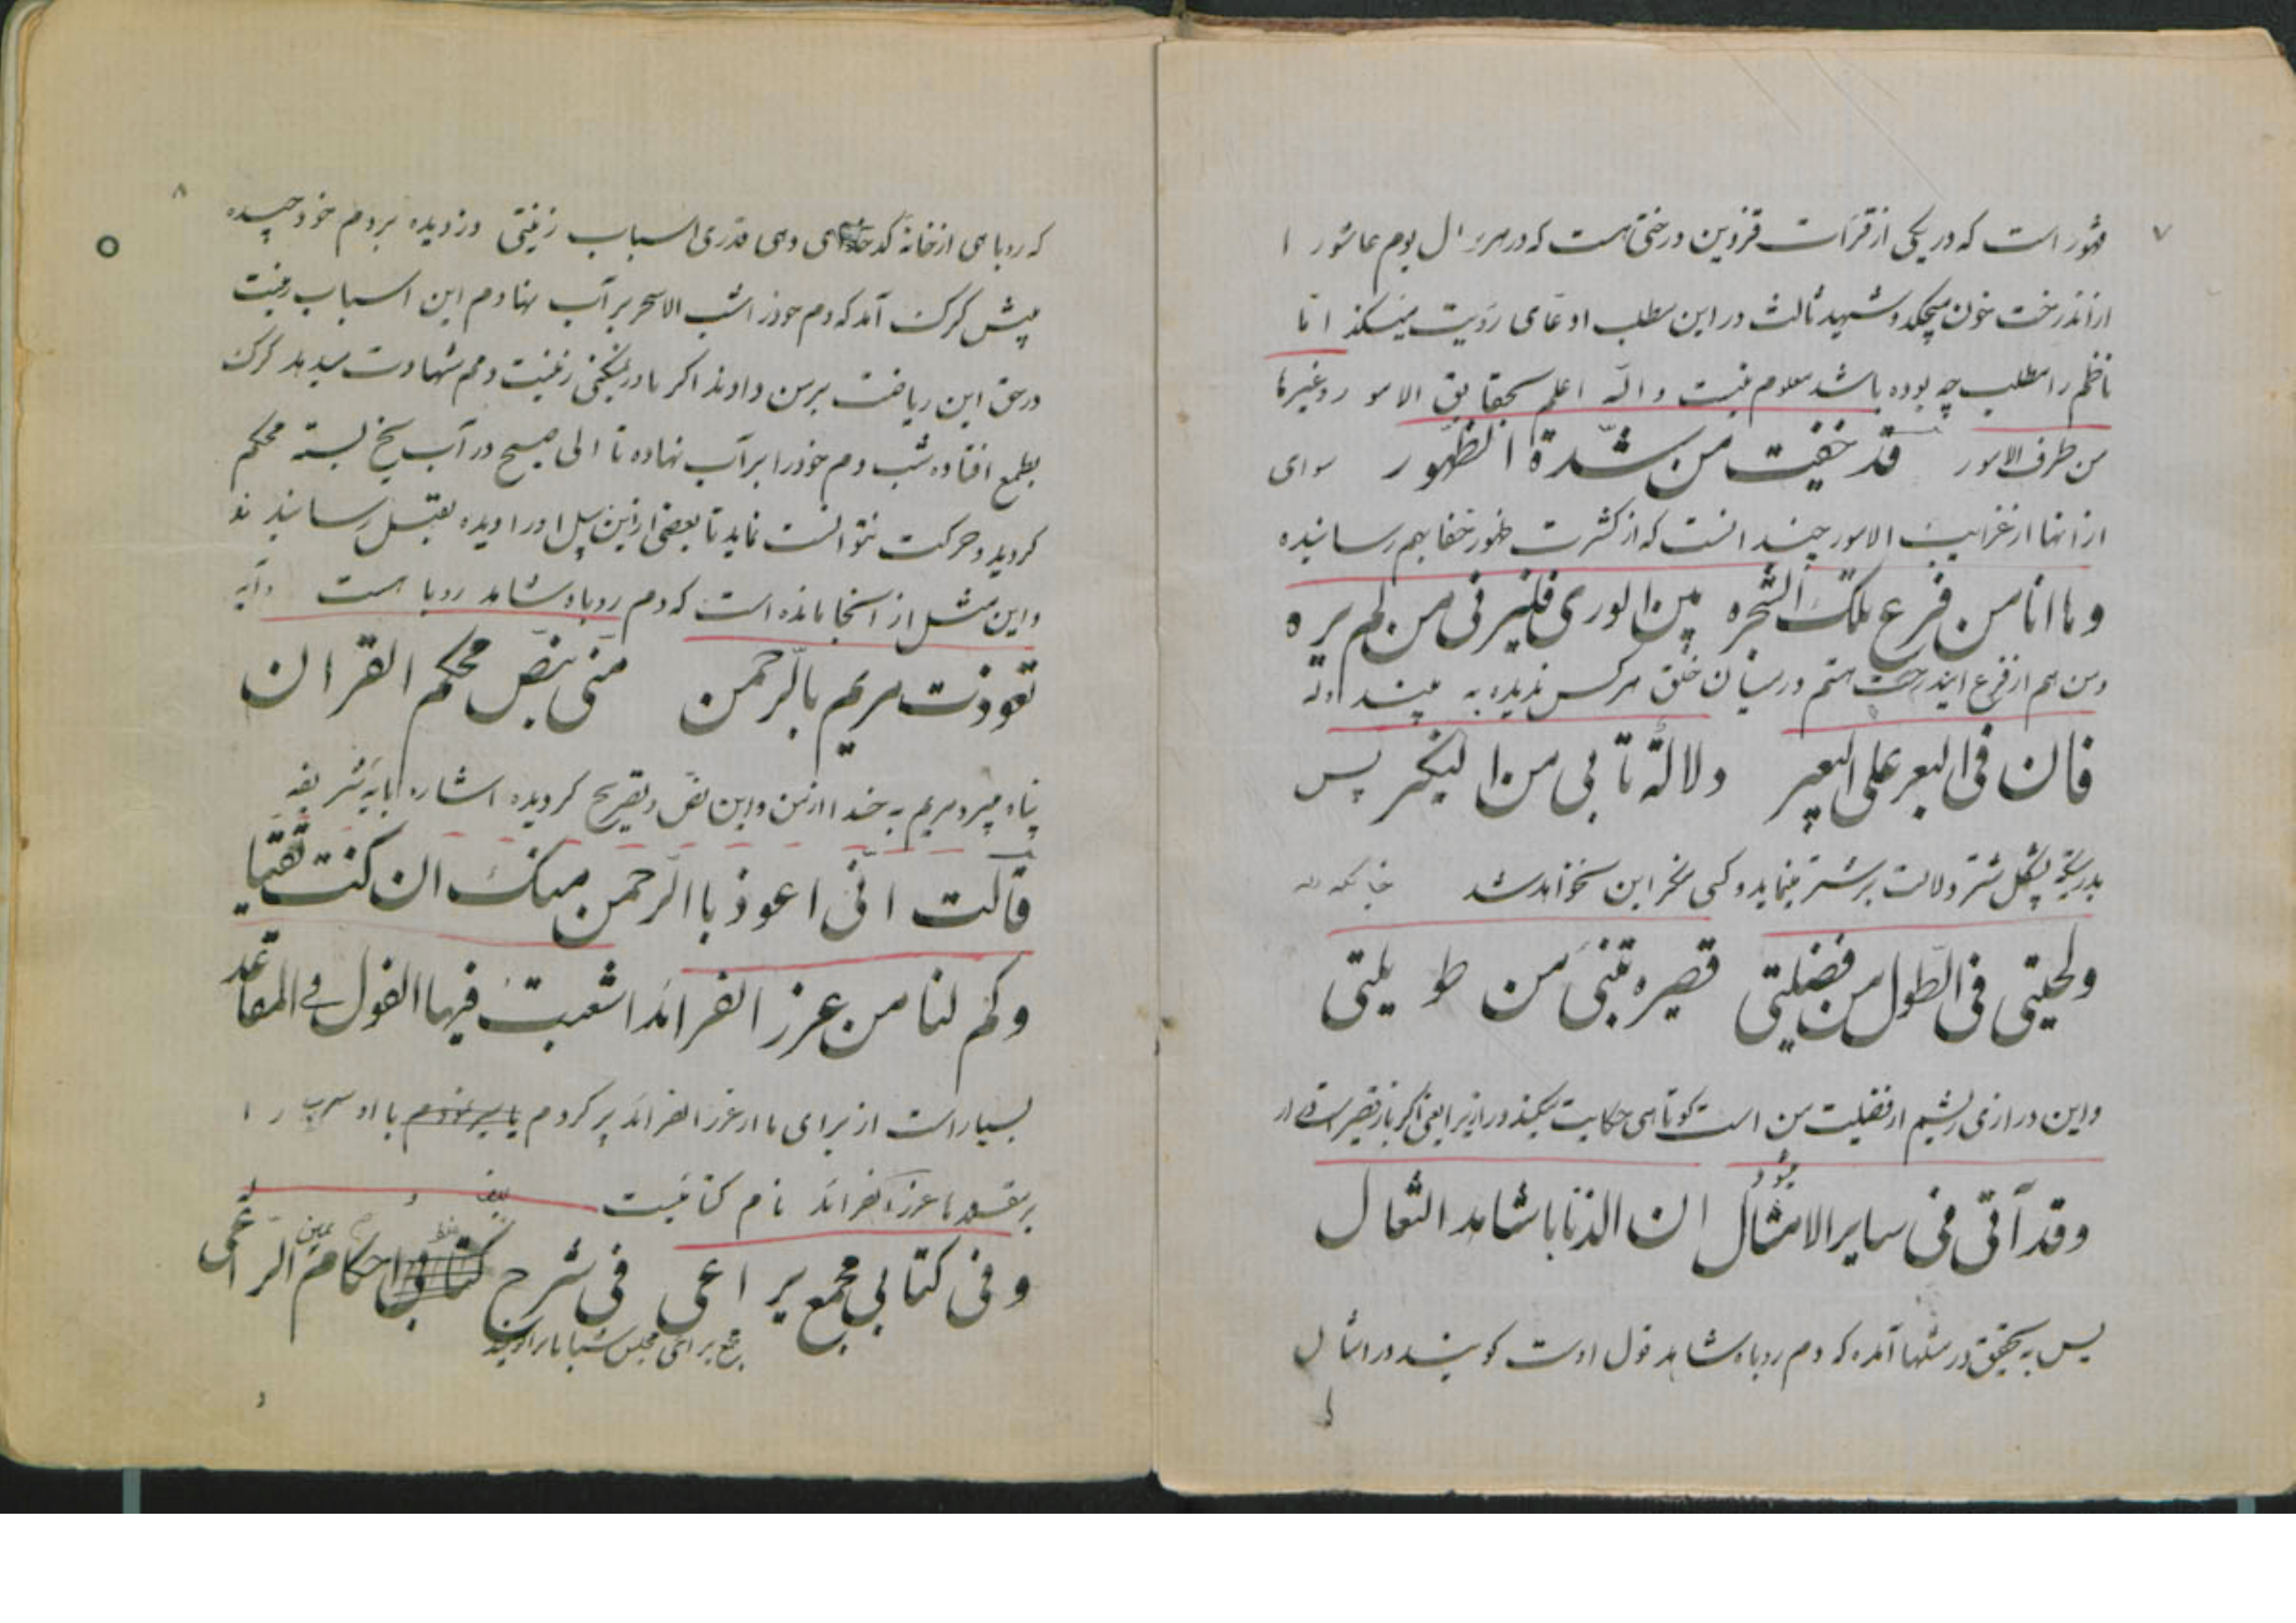 ۷
مشهور است که در یکی از قرآت قزوین درختی است که در هر سال یوم عاشورا
از اندرخت خون میچکد و شهید ثالث در این مطلب ادعای رؤیت میکند اما
ناظم را مطلب چه بوده باشد معلوم نیست و الله اعلم بحقایق الامور و غیرها
من طرف الامور قد خفیت من شدّة الظهور سوای
از انها از غرایب الامور چند است که از کثرت ظهور خفا بهم رسانیده
و ها انا من فرع تلک الشجره بین الوری فلیرنی من لم یره
و من هم از فرع ایندرخت هستم در میان خلق هر کس ندیده به بیند
فان فی البعر علی البعیر دلالة تابی من النکیر پس
بدرستیکه پشکل شتر دلالت بر شتر مینماید و کسی منکر این نخواهد شد
ولحیتی فی الطول من فضیلتی قصیره تنبئ من طویلتی
و این درازی ریشم از فضیلت من است کوتاهی حکایت میکند
وقد آتی فی سایر الامثال ان الذنابا شاهد الثعال
پس به تحقیق در مثلها آمده که دم روباه شاهد قول اوست کویند در امثال
۸
که روباهی از خانه کدخدای دهی قدری اسباب زینتی دزدیده بر دم خود چسبیده
پیش کرک آمد که دم خود را شب الا سحر بر آب نهادم این اسباب زینت
در حق این ریاضت بر من دادند اکر باور نمیکنی زینت دمم شهادت میدهد کرک
بطمع افتاده شب دم خود را بر آب نهاده تا الی صبح در آب یخ بسته محکم
کردید و حرکت نتوانست نماید تا بعضی از این سبل او را دیده بقتل رسانیدند
و این مثل از اینجا مانده است که دم روباه شاهد روباه است و آیه
تعوذت مریم بالرحمن منی بنص محکم القران
پناه میبرد مریم به خدا از من و این نص و تصریح کردیده اشاره بآیه شریفه
قالت انی اعوذ با الرحمن منک ان کنت تقیا
وکم لنا من غرر الفرائد اشبعت فیها القول فی المقاعد
بسیار است از برای ما از غرر الفرائد پر کردم با او
غرر الفرائد نام کتابیست
وفی کتابی مجمع یراعی فی شرح احکام الراعی
مجمع برای مجلس